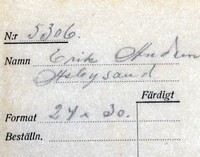 N:r 5306.
Namn Erik Andrén
Astoysand
Färdigt
Format 24 x 30.
Beställn.